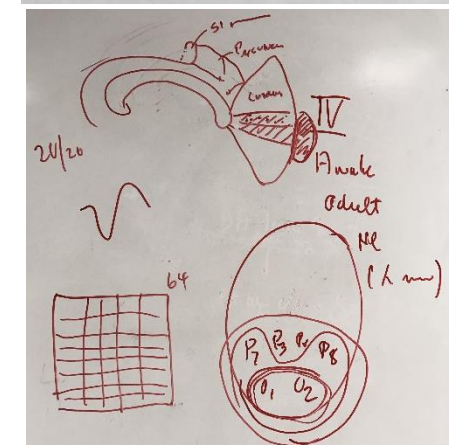 S1
Precuneus
Cuneus
IV
20/20
Awake
adult
64
P7 P3 P4 P8
O1 O2